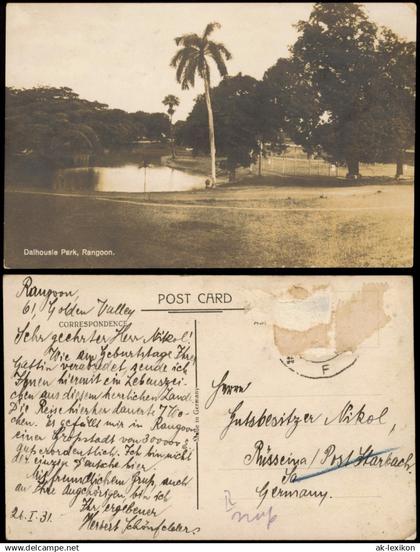 Dalhousie Park, Rangoon.
Rangoon,
61, Golden Valley
POST CARD
CORRESPONDENCE
Sehr geehrter Herr Nikol!
Wie am Geburtstage Ihrer
Gattin verabredet, sende ich
Ihnen hiermit ein Lebenszei-
chen aus diesem herrlichen Lande.
Die Reise hierher dauerte 7 Wo-
chen. Es gefällt mir in Rangoon,
einer Großstadt von 300000 E
außerordentlich. Ich bin nicht
der einzige Deutsche hier.
Mit freundlichem Gruß, auch
an Ihre Angehörigen, bin ich
Ihr ergebener
Herbert Schönfelder.
21. I. 31.
Made in Germany
F
Herrn
Gutsbesitzer Nikol,
Rüsseina / Post Starbach
Sa
Germany.
ak-lexikon